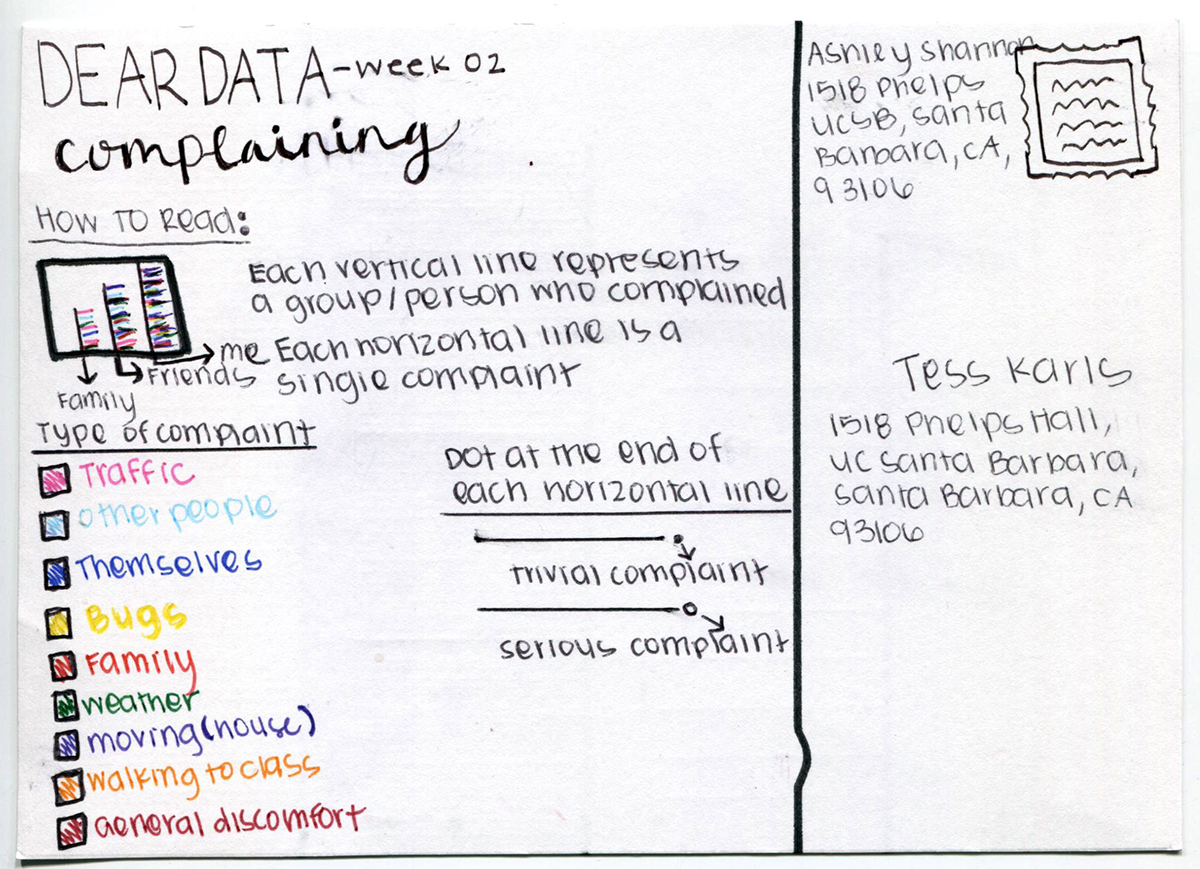 DEAR DATA - week 02
complaining
HOW TO Read:
Each vertical line represents
a group/person who complained
Each horizontal line is a
single complaint
me
Friends
Family
Type of complaint
Traffic
other people
Themselves
Bugs
Family
weather
moving (house)
walking to class
General discomfort
DOT at the end of
each horizontal line
trivial complaint
serious complaint
Ashley Shannon
1518 Phelps
UCSB, Santa
Barbara, CA,
93106
Tess Karls
1518 Phelps Hall,
UC Santa Barbara,
Santa Barbara, CA
93106